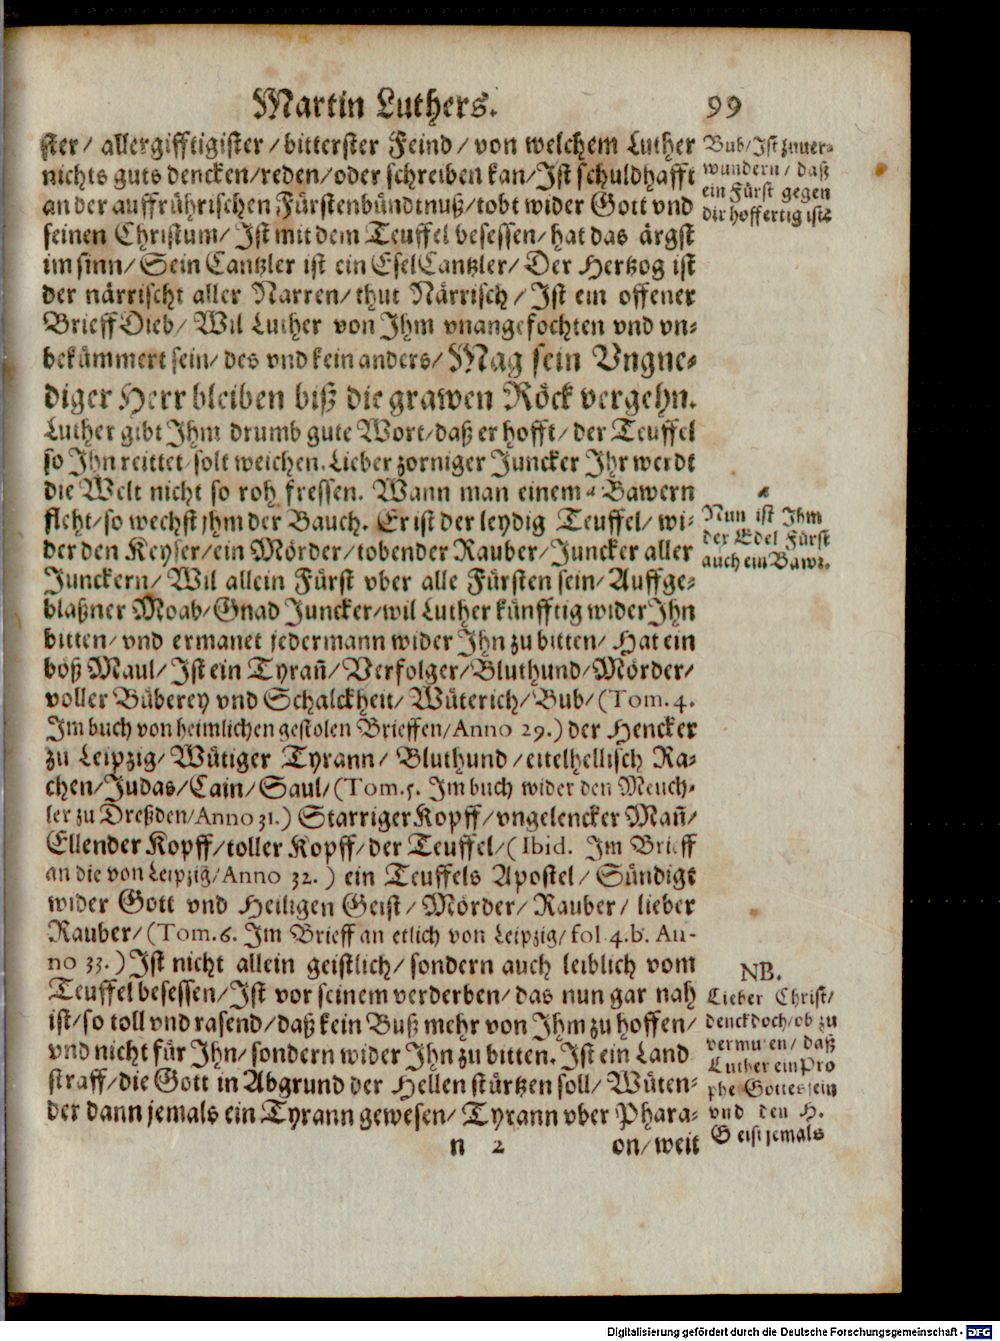 Martin Luthers. 99
ster/ allergifftigister/bitterster Feind/von welchem Luther
nichts guts dencken/reden/oder schreiben kan/Ist schuldhafft
an der auffrührischen Fürstenbündtnuß/tobt wider Gott vnd
seinen Christum/ Ist mit dem Teuffel besessen/hat das ärgst
im sinn/ Sein Cantzler ist ein EselCantzler/ Der Hertzog ist
der närrischt aller Narren/thut Närrisch/ Ist ein offener
Brieff Dieb/ Wil Luther von Ihm vnangefochten vnd vn-
bekümmert sein/des vnd kein anders/Mag sein Vngne-
diger Herr bleiben biß die grawen Röck vergehn.
Luther gibt Ihm drumb gute Wort/daß er hofft/der Teuffel
so Ihn reittet/solt weichen. Lieber zorniger Juncker Ihr werdt
die Welt nicht so roh fressen. Wann man einem a Bawern
fleht/so wechst ihm der Bauch. Er ist der leydig Teuffel/wi-
der den Keyser/ein Mörder/tobender Rauber/Juncker aller
Junckern/ Wil allein Fürst vber alle Fürsten sein/Auffge-
blaßner Moab/Gnad Juncker/wil Luther künfftig wider Ihn
bitten/vnd ermanet jedermann wider Ihn zu bitten/ Hat ein
böß Maul/Ist ein Tyrañ/Verfolger/Bluthund/Mörder/
voller Büberey vnd Schalckheit/Wüterich/Bub/(Tom. 4.
Im buch von heimlichen gestolen Brieffen/Anno 29.) der Hencker
zu Leipzig/Wütiger Tyrann/ Bluthund/eitelhellisch Ra-
chen/Judas/Cain/Saul/(Tom. 5. Im buch wider den Meuch-
ler zu Dreßden/Anno 31.) Starriger Kopff/vngelencker Mañ/
Ellender Kopff/toller Kopff/der Teuffel/(Ibid. Im Brieff
an die von Leipzig/Anno 32.) ein Teuffels Apostel/Sündigt
wider Gott vnd Heiligen Geist/Mörder/Rauber/ lieber
Rauber/(Tom. 6. Im Brieff an etlich von Leipzig/fol 4. b. An-
no 33.) Ist nicht allein geistlich/sondern auch leiblich vom
Teuffel besessen/Ist vor seinem verderben/das nun gar nah
ist/so toll vnd rasend/daß kein Buß mehr von Ihm zu hoffen/
vnd nicht für Ihn/sondern wider Ihn zu bitten. Ist ein Land
straff/die Gott in Abgrund der Hellen stürtzen soll/Wüten-
der dann jemals ein Tyrann gewesen/Tyrann vber Phara-
n 2 on/weit
Bub/Ist zuuer-
wundern/daß
ein Fürst gegen
dir hoffertig ist?
a
Nun ist Ihm
der Edel Fürst
auch ein Bawr.
NB.
Lieber Christ/
denck doch/ob zu
vermuten/daß
Luther ein Pro
phe Gottes sein
vnd den H.
Geist jemals
Digitalisierung gefördert durch die Deutsche Forschungsgemeinschaft - DFG